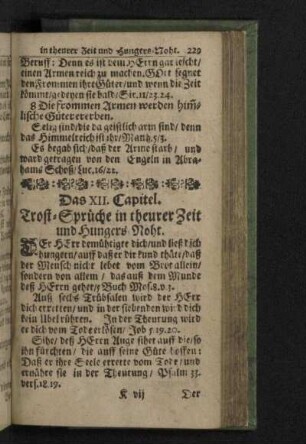 in theurer Zeit und Hungers-Noht. 229
Beruff: Denn es ist dem HErrn gar leicht/
einen Armen reich zu machen. GOtt segnet
den Frommen ihre Güter/und wenn die Zeit
kömmt/gedeyen sie bald/Sir.11/23.24.
8 Die frommen Armen werden him̃-
lische Güter ererben.
Selig sind/die da geistlich arm sind/ denn
das Himmelreich ist ihr/Matth.5/3.
Es begab sich/daß der Arme starb/ und
ward getragen von den Engeln in Abra-
hams Schoß/Luc.16/22.
Das XII. Capitel.
Trost-Sprüche in theurer Zeit
und Hungers Noht.
DEr HErr demühtigte dich/und ließ dich
hungern/auff daß er dir kund thäte/daß
der Mensch nicht lebet vom Brot allein/
sondern von allem/ das auß dem Munde
deß HErrn gehet/5 Buch Mos.8.v.3.
Auß sechs Trübsalen wird der HErr
dich erretten/und in der siebenden wird dich
kein Ubel rühren. In der Theurung wird
er dich vom Tode erlösen/ Job 5.19.20.
Sihe/ deß HErrn Auge sihet auff die/so
ihn fürchten/ die auff seine Güte hoffen:
Daß er ihre Seele errette vom Tode/ und
ernähre sie in der Theurung/ Psalm 33.
vers.18.19.
K vij Der